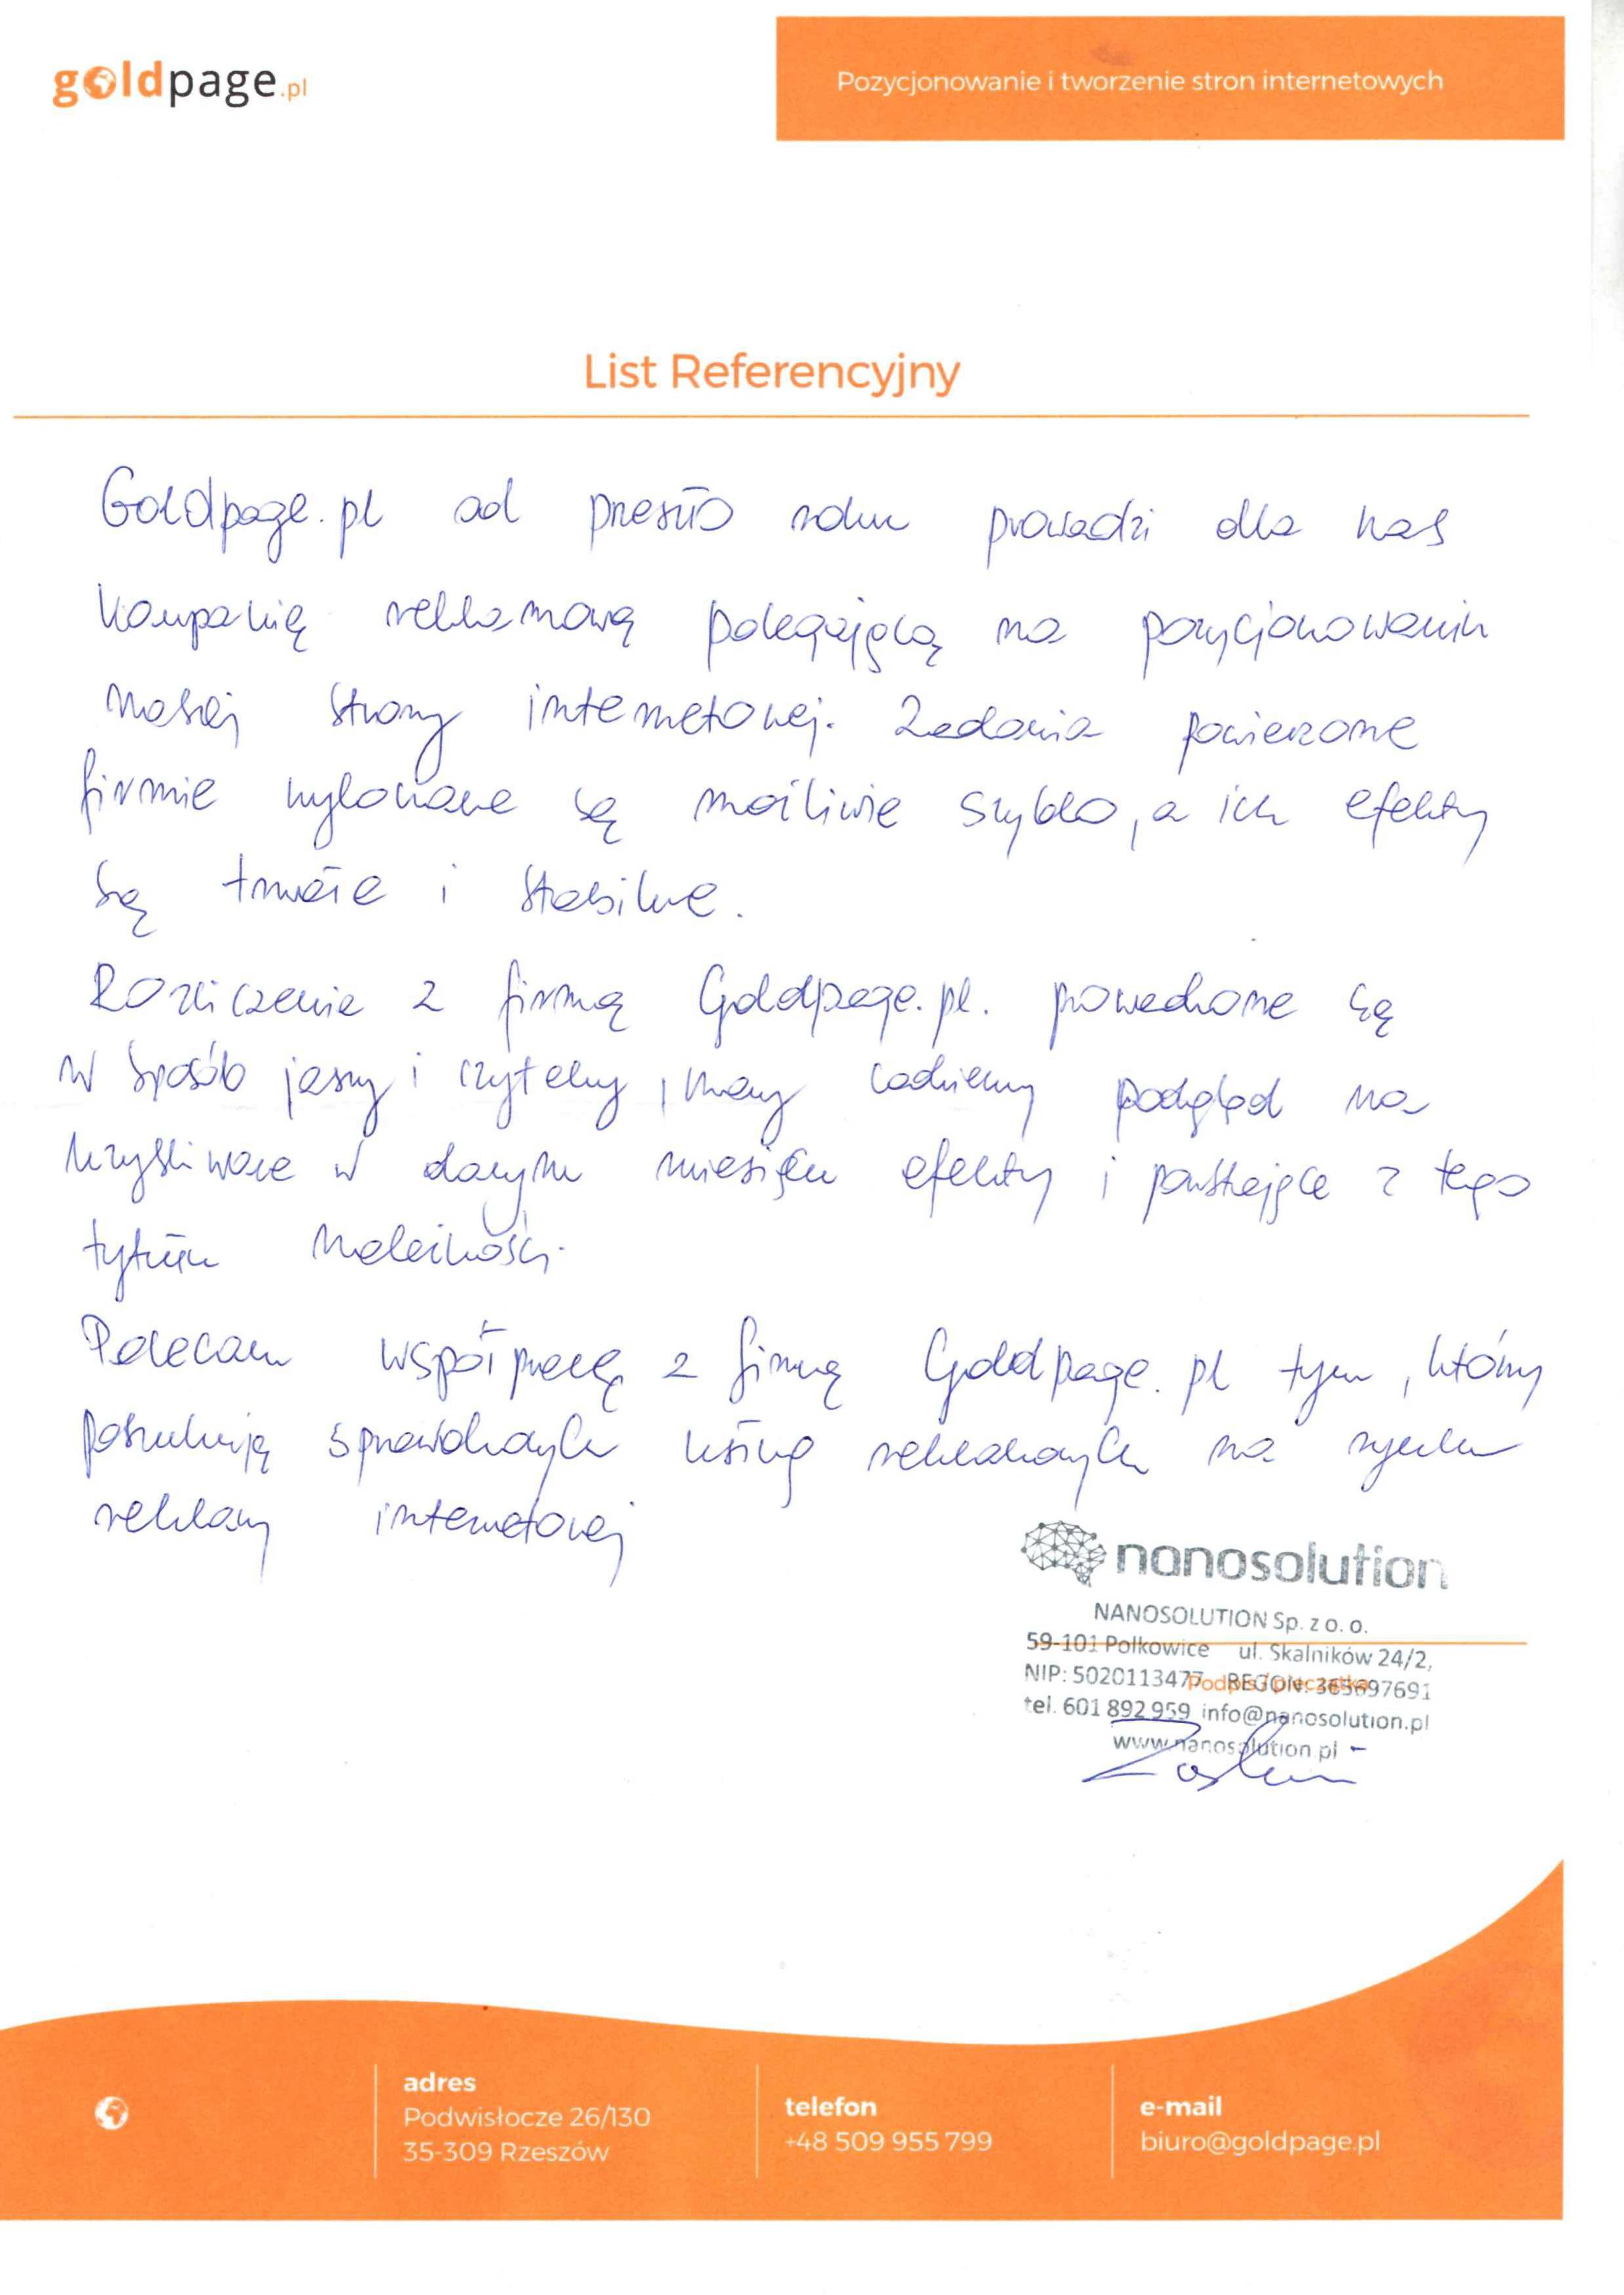 goldpage.pl
Pozycjonowanie i tworzenie stron internetowych
List Referencyjny
Goldpage.pl od przeszło roku prowadzi dla nas
kampanię reklamową polegającą na pozycjonowaniu
naszej strony internetowej. Zadania powierzone
firmie wykonane są możliwie szybko, a ich efekty
są trwałe i stabilne.
Rozliczenie z firmą Goldpage.pl. prowadzone są
w sposób jasny i czytelny, mamy codzienny podgląd na
uzyskiwane w danym miesiącu efekty i powstające z tego
tytułu należności.
Polecam współpracę z firmą Goldpage.pl tym, którzy
poszukują sprawdzonych usług reklamowych na rynku
reklamy internetowej
nanosolution
NANOSOLUTION Sp. z o. o.
59-101 Polkowice ul. Skalników 24/2,
NIP: 5020113477 REGON: 365697691
Podpis / pieczątka
tel. 601 892 959 info@nanosolution.pl
www.nanosolution.pl
adres
Podwisłocze 26/130
35-309 Rzeszów
telefon
+48 509 955 799
e-mail
biuro@goldpage.pl